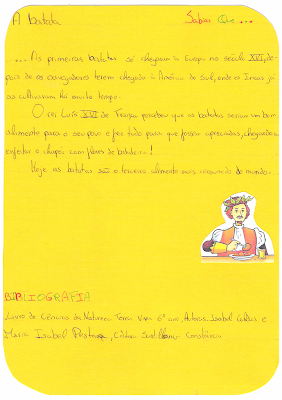 A batata
Sabias Que ...
... As primeiras batatas só chegaram à Europa no século XVI, de-
pois de os navegadores terem chegado à América do Sul, onde os Incas já
as cultivavam há muito tempo.
O rei Luís XVI de França percebeu que as batatas seriam um bom
alimento para o seu povo e fez tudo para que fossem apreciadas, chegando a
enfeitar o chapéu com flores de batateira!
Hoje as batatas são o terceiro alimento mais consumido do mundo.
BIBLIOGRAFIA
Livro de Ciências da Natureza Terra Viva 6º ano, Autoras: Isabel Caldas e
Maria Isabel Pestana, Editora Santillana - Constância